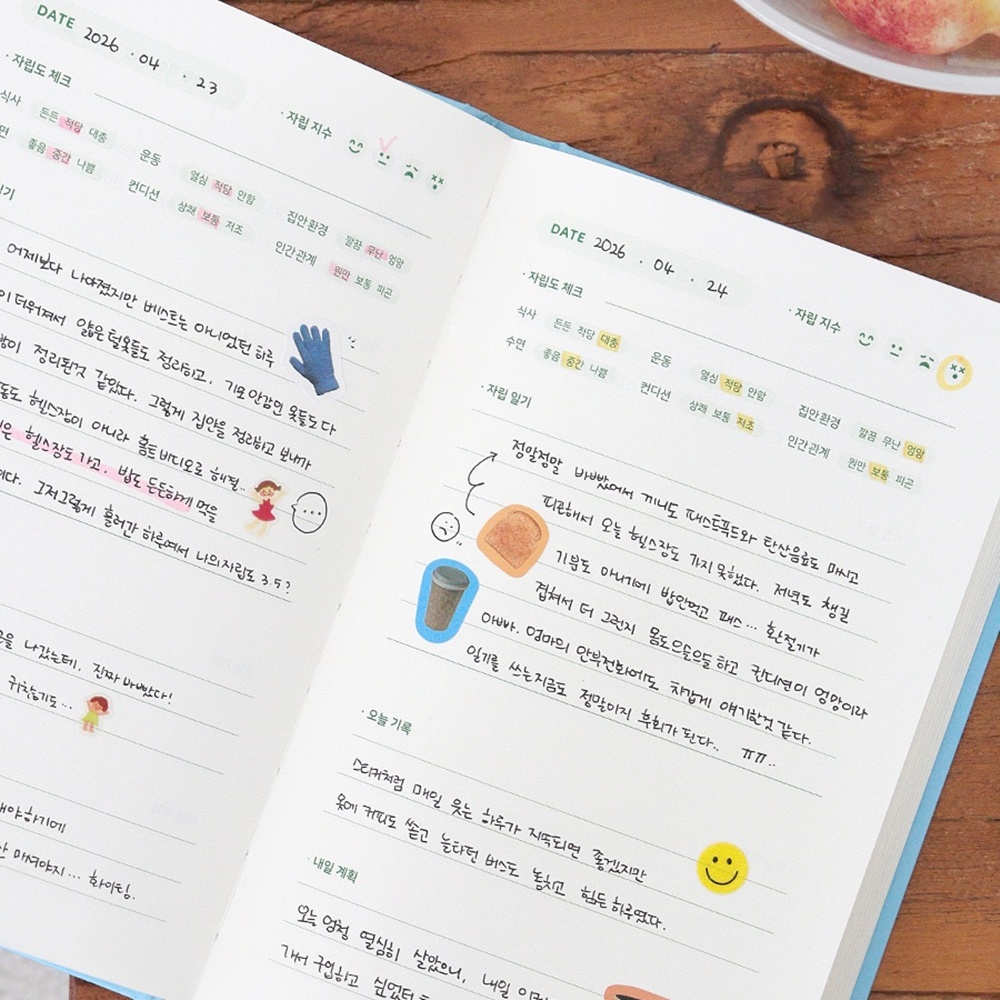 DATE 2026 · 04 · 23
· 자립도 체크
· 자립 지수
식사 든든 적당 대충
운동 열심 적당 안함
집안환경 깔끔 무난 엉망
수면 좋음 중간 나쁨
컨디션 상쾌 보통 저조
인간관계 원만 보통 피곤
일기
어제보다 나아졌지만 베스트는 아니었던 하루
더워져서 얇은 털옷들도 정리하고, 기모 안감인 옷들도 다
정리된것 같았다. 그렇게 집안을 정리하고 보내가
헬스장이 아니라 홈트 비디오로 해결..
헬스장도 가고, 밥도 든든하게 먹을
그저그렇게 흘러간 하루여서 나의 자립도 3.5?
나갔는데, 진짜 바빴다!
귀찮기도...
해야하기에
마셔야지... 화이팅.
DATE 2026 · 04 · 24
· 자립도 체크
· 자립 지수
식사 든든 적당 대충
운동 열심 적당 안함
집안환경 깔끔 무난 엉망
수면 좋음 중간 나쁨
컨디션 상쾌 보통 저조
인간관계 원만 보통 피곤
· 자립 일기
정말정말 바빴어서 끼니도 패스트푸드와 탄산음료도 마시고
피곤해서 오늘 헬스장도 가지 못했다. 저녁도 챙길
기분도 아니기에 밥안먹고 패스... 환절기가
겹쳐서 더 그런지 몸도으슬으슬하고 컨디션이 엉망이라
아빠, 엄마의 안부전화에도 차갑게 얘기한것 같다.
일기를 쓰는지금도 정말이지 후회가 된다.. ㅠㅠ..
· 오늘 기록
스티커처럼 매일 웃는 하루가 지속되면 좋겠지만
옷에 커피도 쏟고 늘타던 버스도 놓치고 힘든 하루였다.
· 내일 계획
오늘 엄청 열심히 살았으니, 내일
개서 구입하고 쉬었던